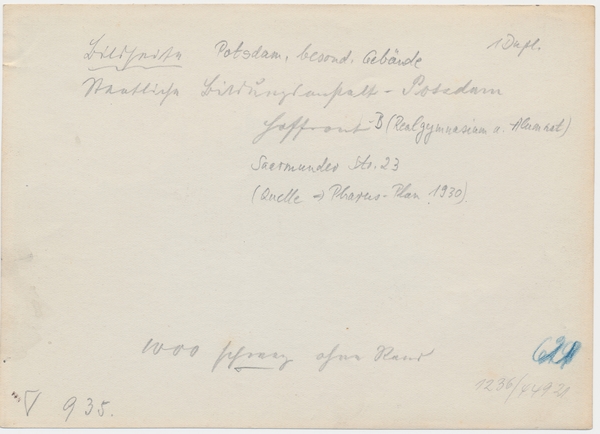 1 Dupl.
Bildseite Potsdam, besond. Gebäude
Staatliche Bildungsanstalt - Potsdam
Hoffront - B (Realgymnasium u. Alumnat)
Saarmunder Str. 23
(Quelle → Pharus-Plan 1930)
1000 schwarz ohne Rand
621
1236/44921
935.